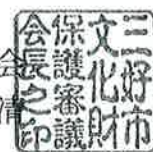 三好市
文化財
保護審議
会長之印
会
清